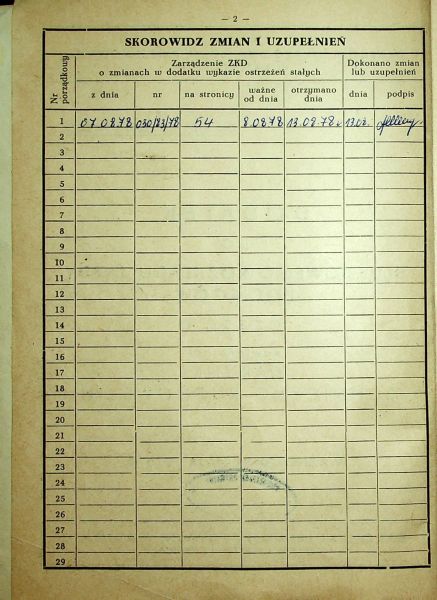 — 2 —
SKOROWIDZ ZMIAN I UZUPEŁNIEŃ
Nr porządkowy
Zarządzenie ZKD
o zmianach w dodatku wykazie ostrzeżeń stałych
Dokonano zmian
lub uzupełnień
z dnia nr na stronicy ważne od dnia otrzymano dnia dnia podpis
1 07.08.78 030/23/78 54 8.08.78 13.08.78 13.08.
2
3
4
5
6
7
8
9
10
11
12
13
14
15
16
17
18
19
20
21
22
23
24
25
26
27
28
29